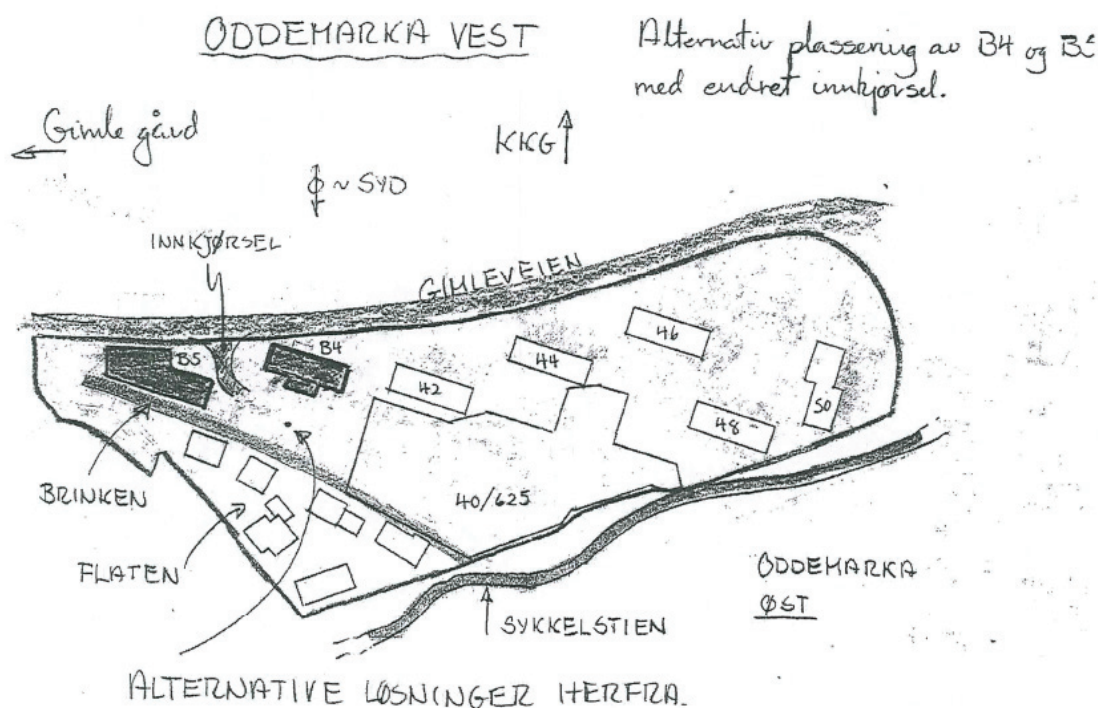 ODDEMARKA VEST
Alternativ plassering av B4 og
med endret innkjørsel.
Gimle gård
KKG
~ SYD
INNKJØRSEL
GIMLEVEIEN
B5
B4
42
44
46
48
50
40/625
BRINKEN
FLATEN
SYKKELSTIEN
ODDEMARKA
ØST
ALTERNATIVE LØSNINGER HERFRA.